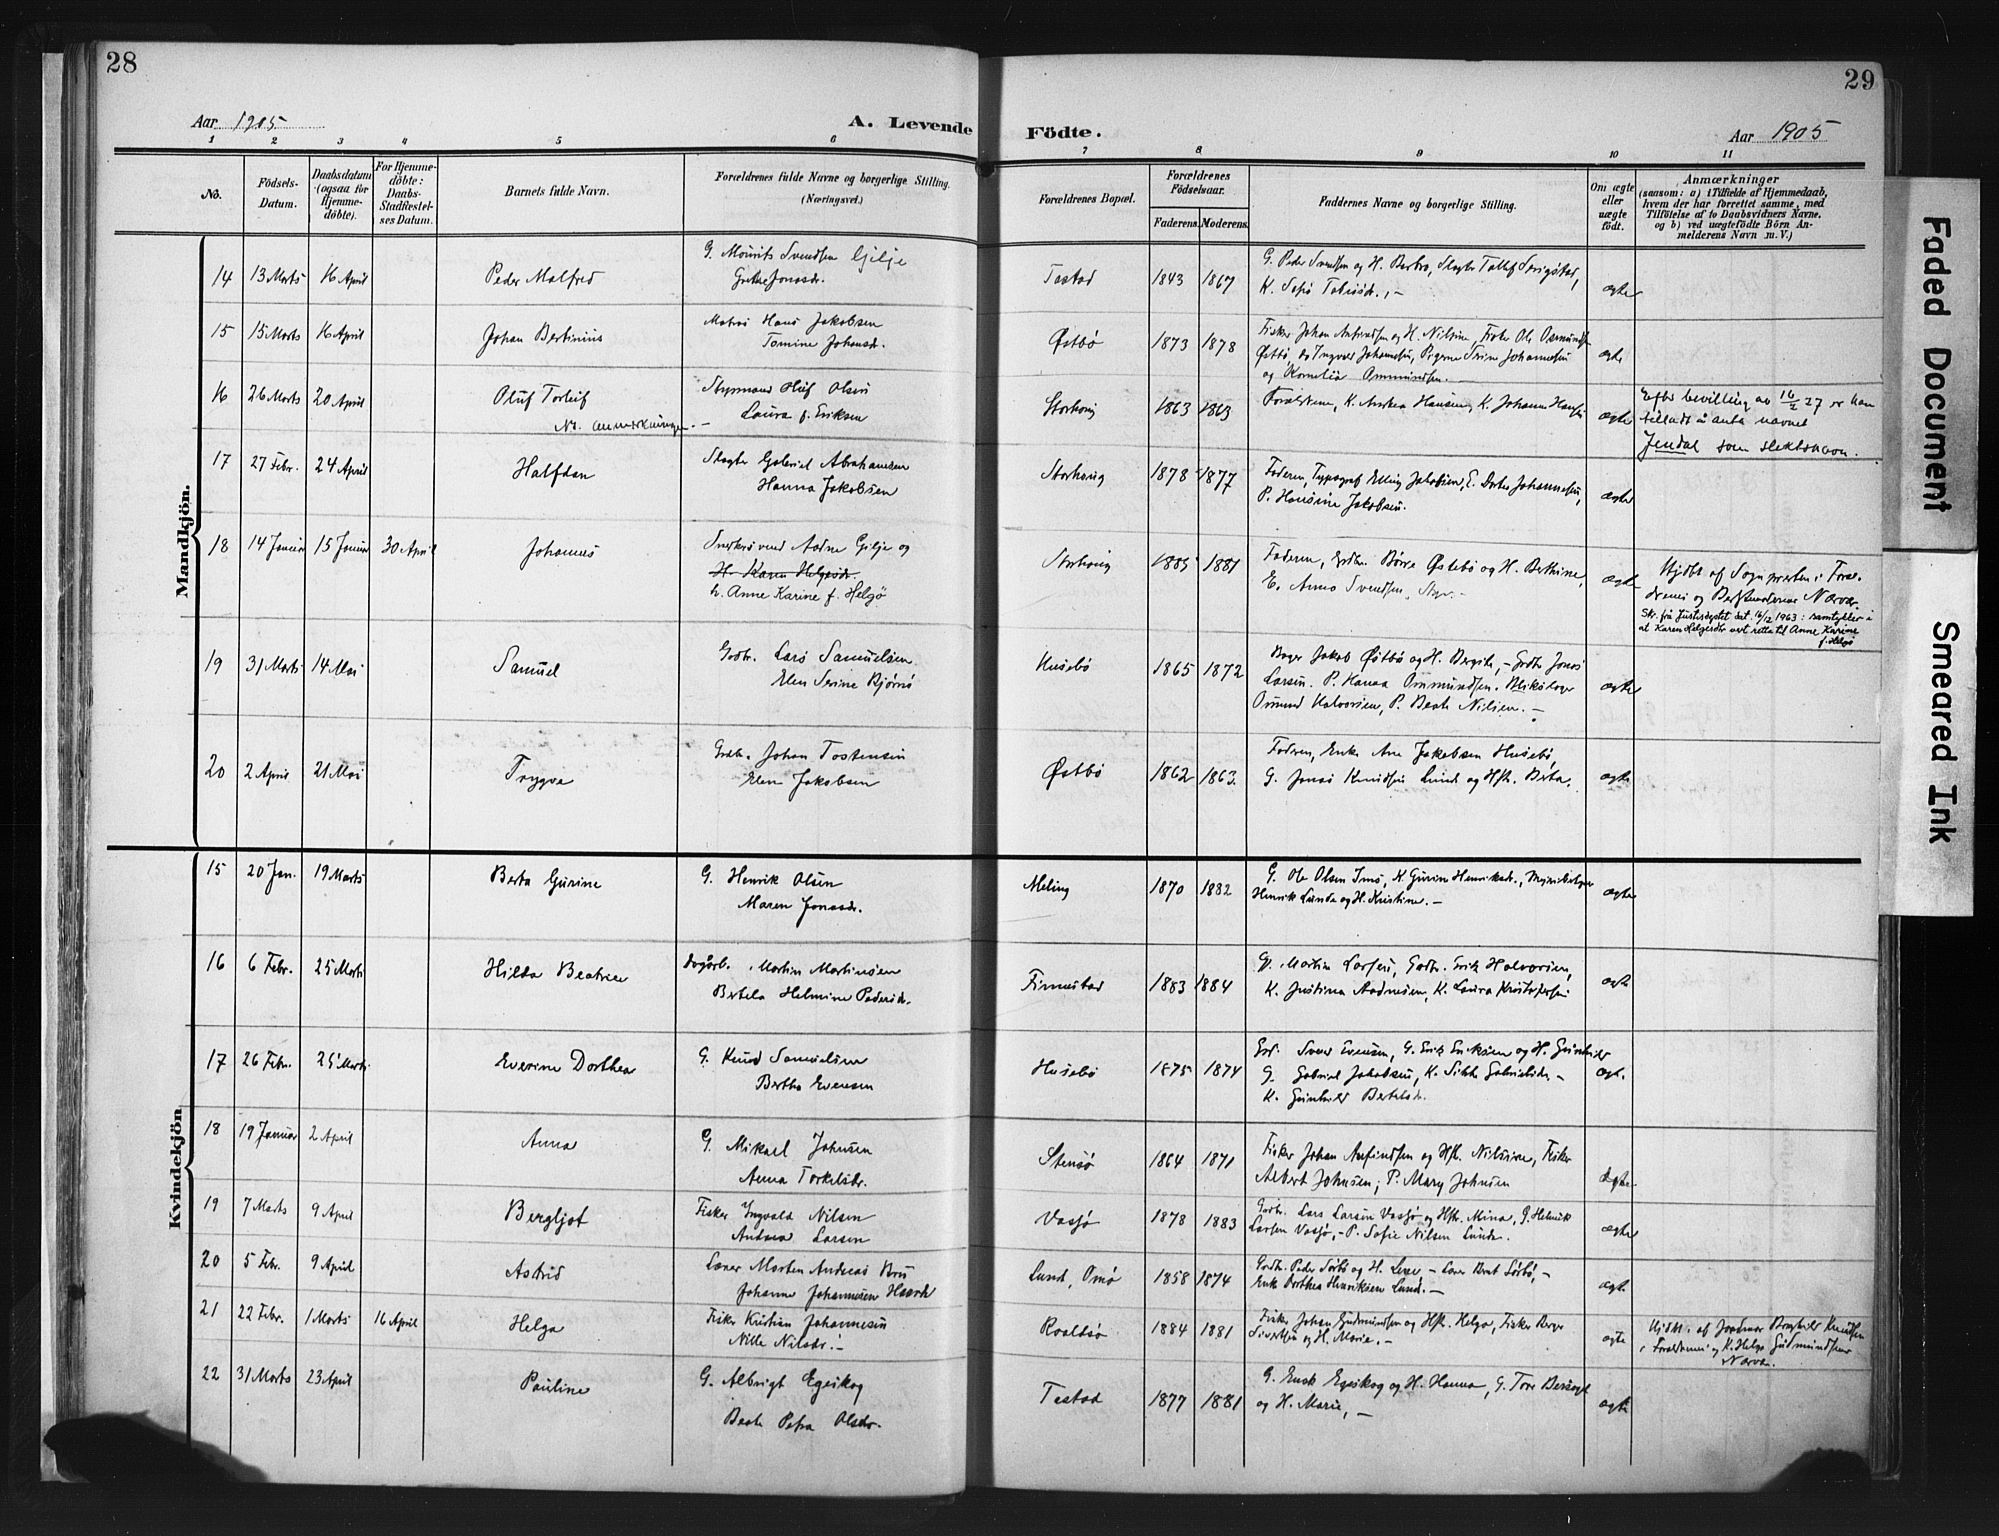 28
29
Aar 1905
A. Levende Födte.
Aar 1905
1 2 3 4 5 6 7 8 9 10 11
No.
Födsels-Datum.
Daabsdatum (ogsaa for Hjemme-döbte).
For Hjemme-döbte: Daabs-Stadfestel-ses Datum.
Barnets fulde Navn.
Forældrenes fulde Navne og borgerlige Stilling. (Næringsvei.)
Forældrenes Bopæl.
Forældrenes Födselsaar.
Faderens. Moderens.
Faddernes Navne og borgerlige Stilling.
Om ægte eller uægte födt.
Anmærkninger
(saasom: a) i Tilfælde af Hjemmedaab,
hvem der har forrettet samme, med
Tilföielse af to Daabsvidners Navne.
og b) ved uægtefödte Börn An-
melderens Navn m.V.)
Mandkjön.
14 13 Marts 16 April Peder Malfred G. Mourits Svendsen Gjilje
Jonasdr. Tastad 1843 1867 G. Peder Svendsen og H. Barbro,
ægte
15 15 Marts 16 April Johan Bertinius Matros Hans Jakobsen
Tomine Johansdr. Østbö 1873 1878 Fisker Johan Anfindsen og H. Nilsine, Fisker Ole Osmundsen
Østbö, og Ingvar Johannesen, Pigerne Trine Johannesen
og Kornelia Ommundsen. ægte
16 26 Marts 20 April Oluf Torleif Styrmand Olsen
Laura f. Eriksen Storhoug 1863 1863 Forældrene, K. Andrea Hansen, K. Johanne Hansen ægte
NB. anmerkninger.
Efter bevilling av 16/2 27 er han
tilladt å anta navnet
Jendal som slektsnavn.
17 27 Febr. 24 April Halfdan Slagter Gabriel Abrahamsen
Hanna Jakobsen Storhoug 1878 1877 Faderen, Typograf Elling Jakobsen, E. Johannesen,
P. Hansine Jakobsen. ægte
18 14 Januar 15 Januar 30 April Johannes Snedkersvend Aadne Gilje og
H. Karen Helgesdr.
h. Anne Karine f. Helgö Storhoug 1885 1881 Faderen, Børre Østebö og H. Berthine,
E. Anna Svendsen, ægte
Hjdbt af Sognepræsten i Foræl-
drenes og Nærvær.
Skr. frå Justisdeptet dat. 16/12 1963: samtykker i
at Karen Helgesdtr vert retta til Anne Karine
f. Helgö
19 31 Marts 14 Mai Samuel Gaardbr. Lars Samuelsen
Elen Serine Bjørnö Husebö 1865 1872 Bager Jakob Østbö og H. Bergite, - Gaardbr Jonas
Larsen. P. Hanna Ommundsen. Blikslager
Omund Halvorsen, P. Beate Nilsen. - ægte
20 2 April 21 Mai Trygve Gaardbr. Johan Tostensen
Elen Jakobsen Østbö 1862 1863. Faderen, Enke Ane Jakobsen Husebö,
G. Jonas Knudsen Lunde og Hst. Berta. ægte
Kvindekjön
15 20 Jan. 19 Marts Berta Gurine G. Henrik Olsen
Maren Jonasdr. Meling 1870 1882 G. Ole Olsen Imsö, K. Gurine Henriksdr.,
Henrik Lunde og H. Kristine. - ægte
16 6 Febr. 25 Marts Hilda Beatrice Martin Martinsen
Bertela Helmine Pedersdr. Finnestad 1883 1884 G. Martin Larsen, Gaardbr. Erik Halvorsen,
K. Justina Aadnesen, K. Laura Kristofersen ægte
17 26 Febr. 25 Marts Everine Dorthea G. Knud Samuelsen
Bertha Evensen Husebö 1875 1874 Svend Evensen, G. Erik Eriksen og H. Gunhilde
G. Gabriel Jakobsen, K. Sikke Gabrielsdr. -
K. Gunhild Bertelsdr. ægte
18 19 Januar 2 April Anna G. Mikael Johnsen
Anna Torkelsdr. Stensö 1864 1871 Fisker Johan Anfindsen og Hst. Nilsine, Fisker
Albert Johnsen; P. Mary Johnsen ægte
19 7 Marts 9 April Bergljot Fisker Ingvald Nilsen
Andrea Larsen Vassjö 1878 1883 Gaardbr. Lars Larsen Vassjö og Hst. Mina, G. Henrik
Larsen Vassjö, - P. Sofie Nilsen Lunde. ægte
20 5 Febr. 9 April Astrid Læser Morten Andreas Bru
Johanne Johannesen Lund, Omö 1858 1874 Gaardbr. Peder Sörbö og H. - Brut Sörbö, -
Enke Dorthea Henriksen Lund. - ægte
21 22 Febr. 1 Marts 16 April Helga Fisker Kristian Johannesen
Nille Nilsdr. - Roaldsö 1884 1881 Fisker Johan Gudmundsen og Hst. Helga, Fisker Børge
Sivertsen og H. Marie. - ægte
Hjdbt. af Jordmor Knudsen
i Forældrenes og K. Helga Gudmundsens
Nærvær.
22 31 Marts 23 April Pauline G. Albrigt Egeskog
Beate Petra Olsdr. Tastad 1877 1881 G. Enok Egeskog og H. Hanna, G. Tore Bersagel
og H. Marie, - ægte
Faded Document
Smeared Ink